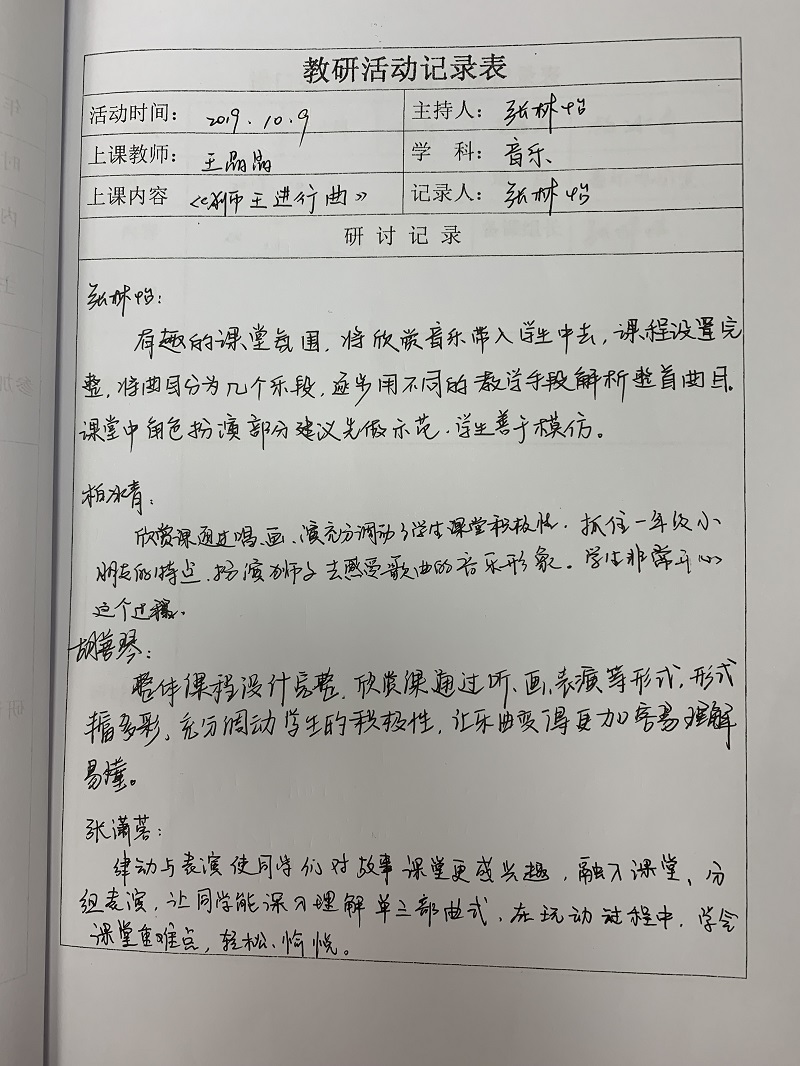 教研活动记录表
活动时间: 2019.10.9 主持人: 张林怡
上课教师: 王晶晶 学 科: 音乐
上课内容 《狮王进行曲》 记录人: 张林怡
研 讨 记 录
张林怡:
有趣的课堂氛围, 将欣赏音乐带入学生中去, 课程设置完
整, 将曲目分为几个乐段, 逐步用不同的教学手段解析整首曲目.
课堂中角色扮演部分建议先做示范, 学生善于模仿。
柏冰青:
欣赏课通过唱、画、演充分调动了学生课堂积极性. 抓住一年级小
朋友的特点, 扮演狮子去感受歌曲的音乐形象。学生非常开心
这个过程.
胡善琴:
整体课程设计完整, 欣赏课通过听、画、表演等形式, 形式
丰富多彩, 充分调动学生的积极性, 让乐曲变得更加容易理解
易懂。
张潇
律动与表演使同学们对故事课堂更感兴趣, 融入课堂、分
组表演, 让同学能深入理解单三部曲式, 在玩动过程中, 学会
课堂重难点, 轻松、愉悦。